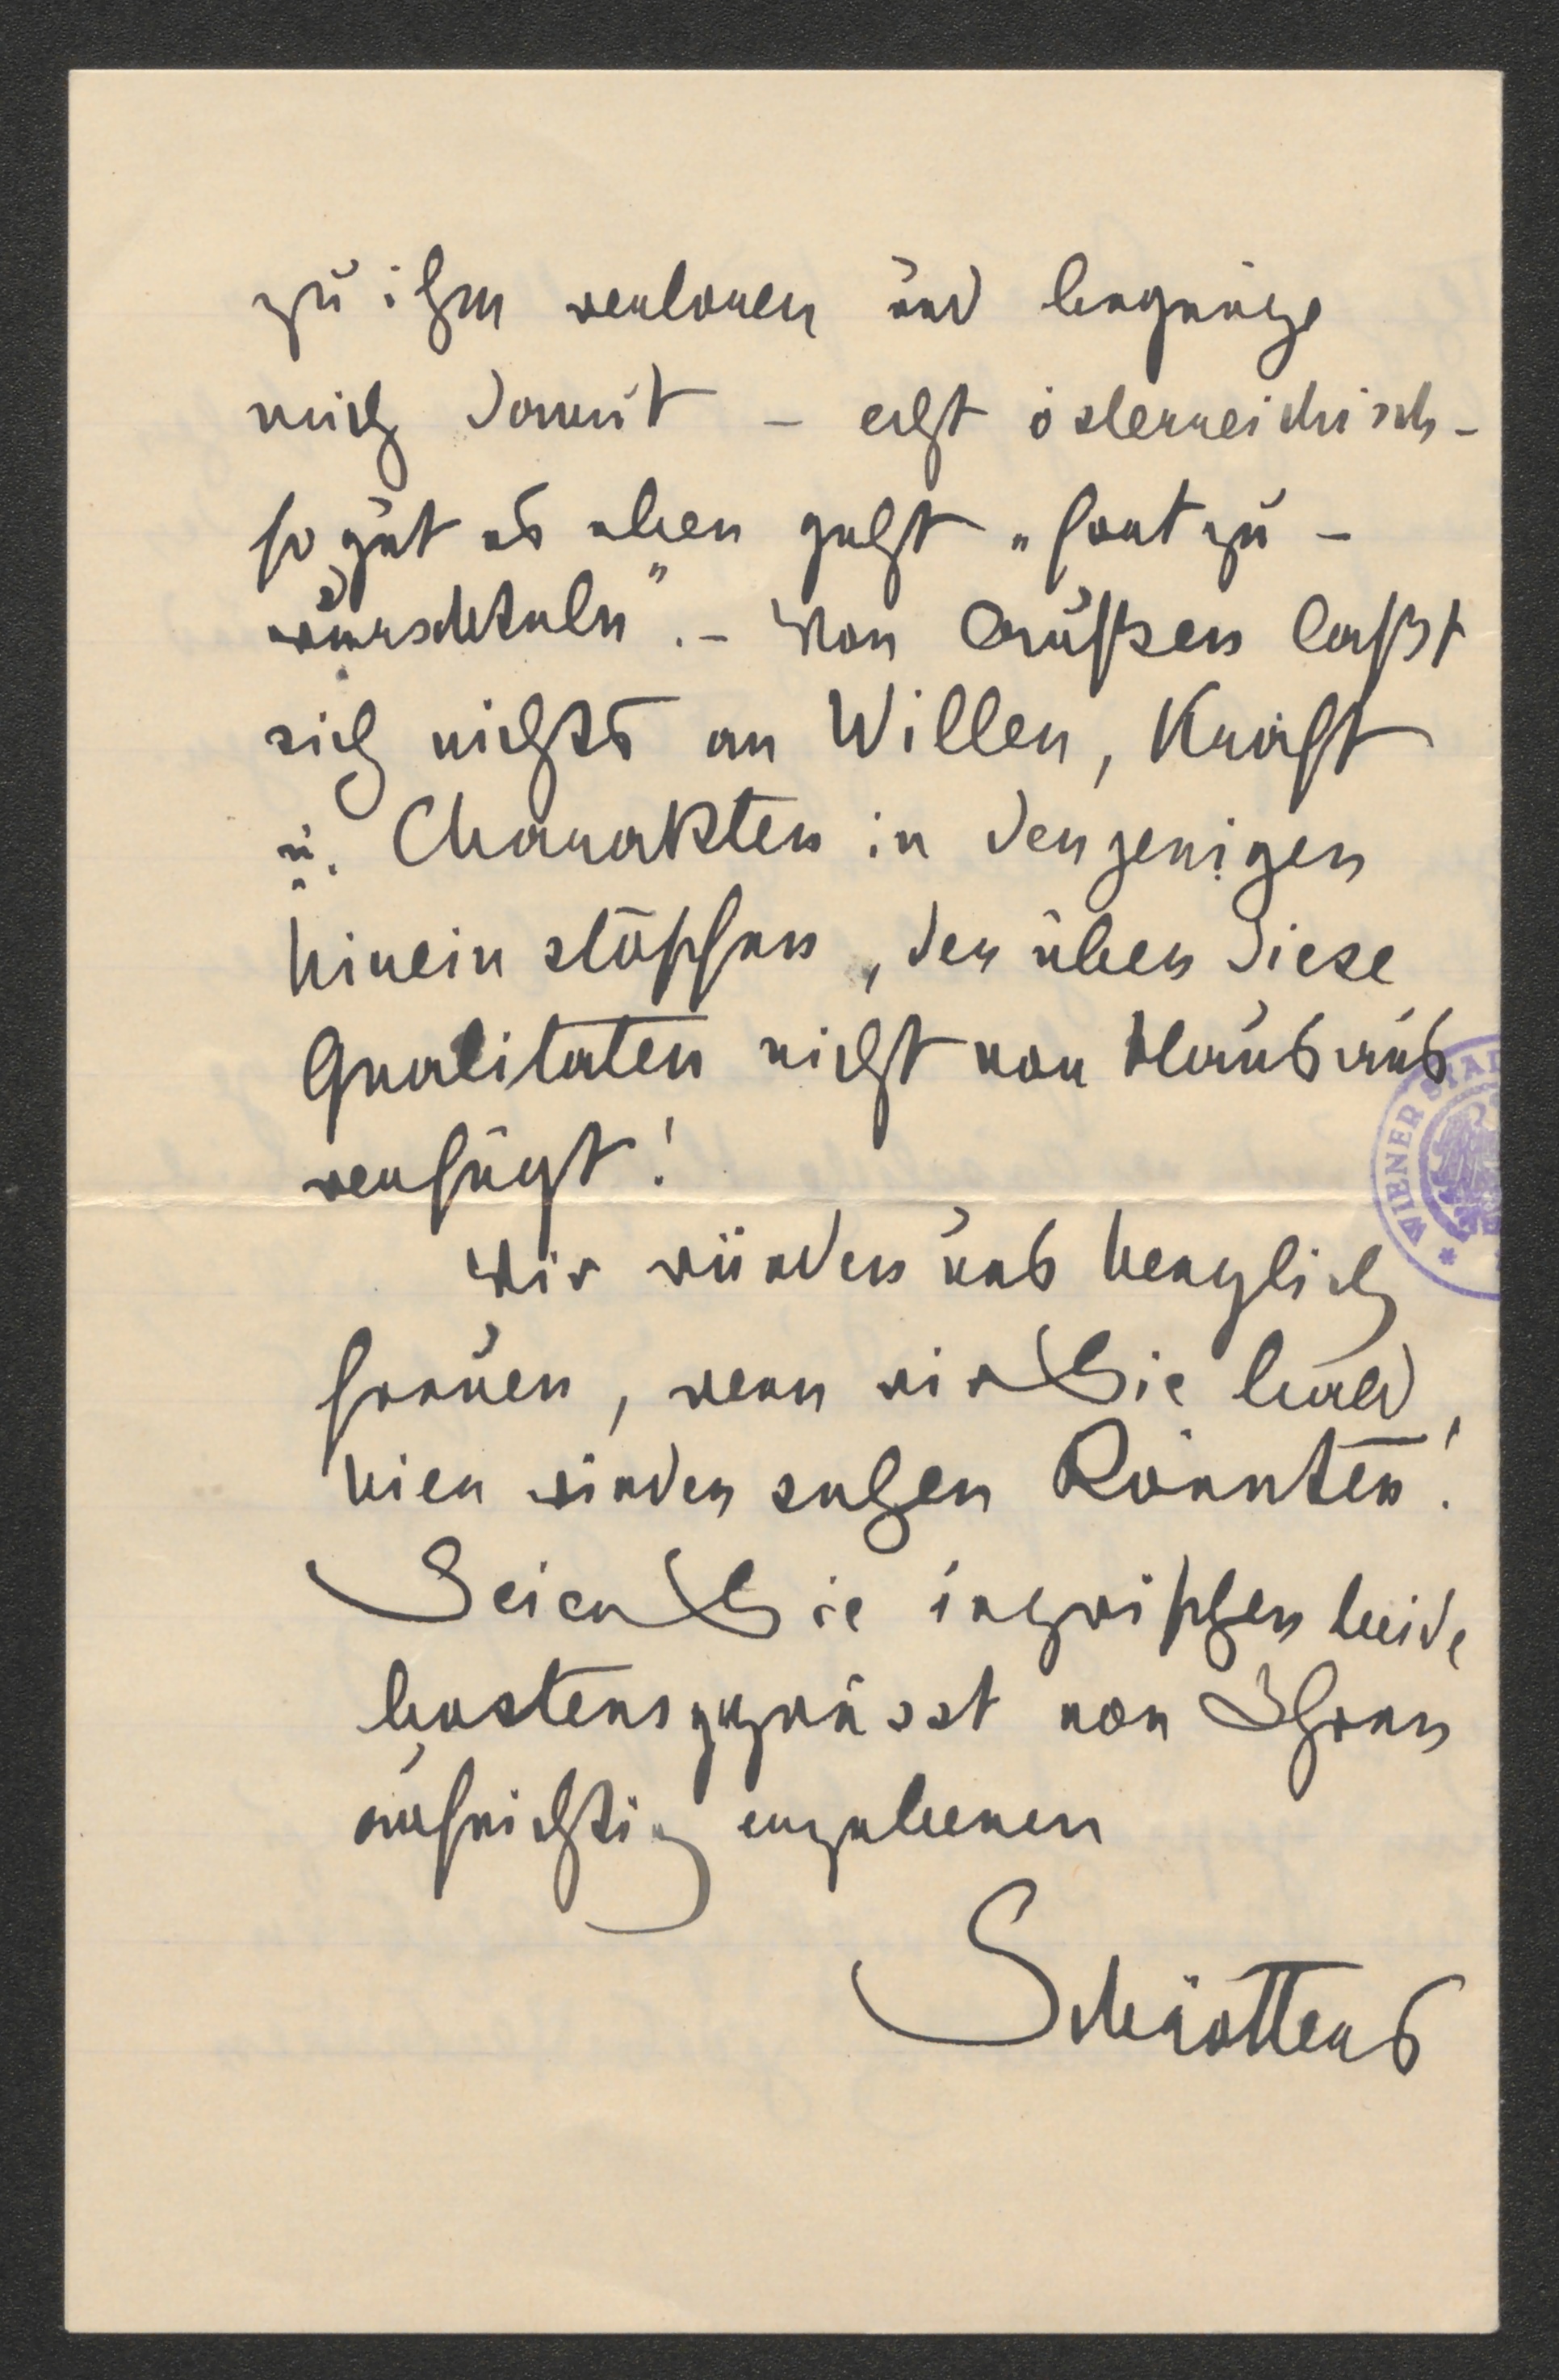 zu ihm verloren und begnüge
mich damit – echt österreichisch –
so gut es eben geht „fortzu-
wurschteln“. – Von Außen lasst
sich nichts an Willen, Kraft
u. Charakter in denjenigen
hineinstopfen, der über diese
Qualitäten nicht von Haus aus
verfügt!
Wir würden uns herzlich
freuen, wenn wir Sie bald
hier wieder sehen könnten!
Seien Sie inzwischen beide
bestens gegrüsst von Ihren
aufrichtig ergebenen
Schrotters
WIENER STAD